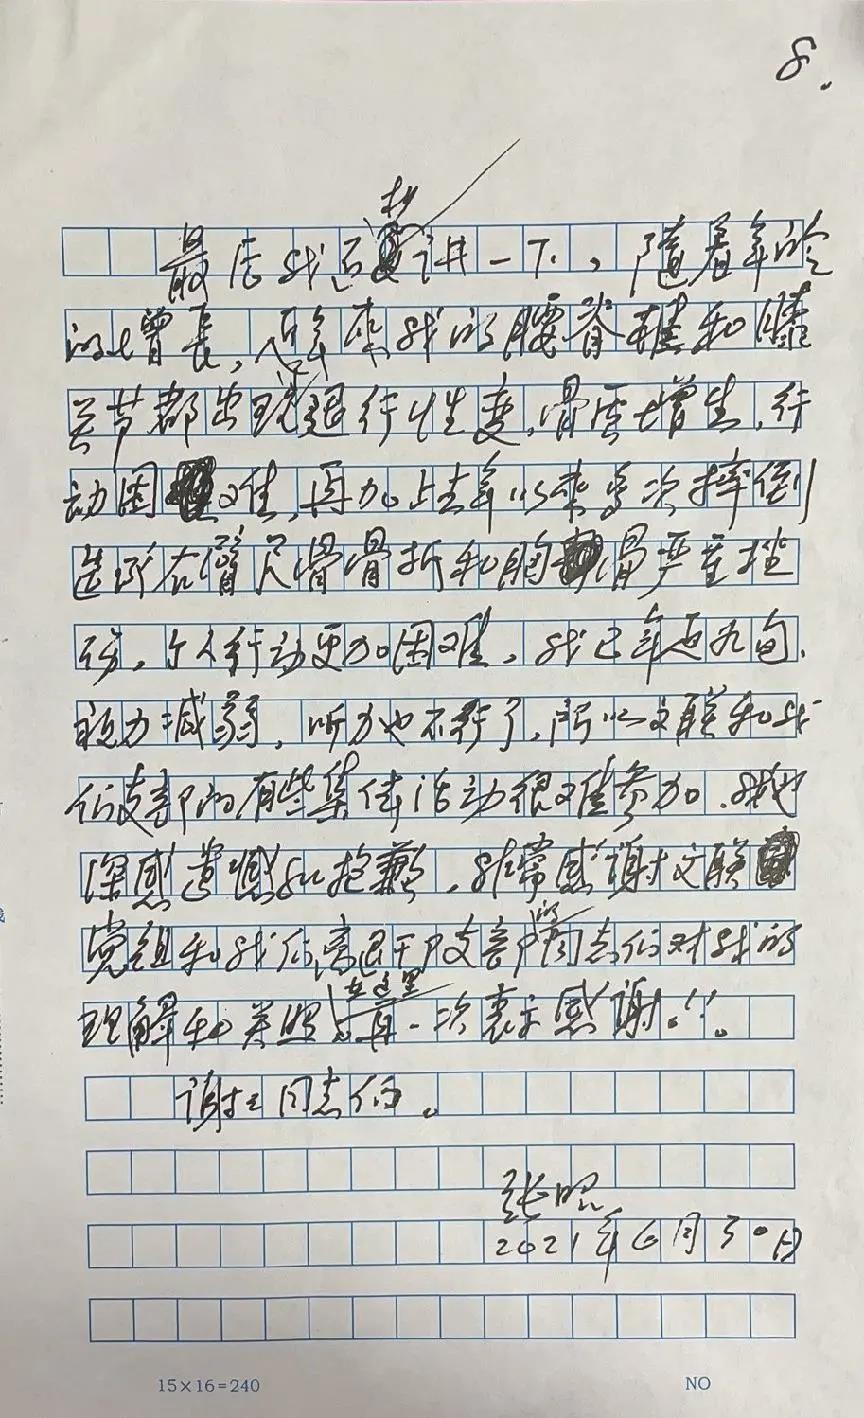 8.
最后我还想讲一下，随着年龄
的增長，近年来我的腰脊椎和膝
关节都出现退行性变，骨质增生，行
动困难，再加上去年以来多次摔倒
造成右臂尺骨骨折和胸骨严重挫
伤，个人行动更加困难，我已年近九旬，
视力减弱，听力也不行了，所以文联和我
们支部的有些集体活动很难参加，我也
深感遗憾和抱歉，非常感谢文联
党组和我们离退干P支部的同志们对我的
理解和关照，在这里再一次表示感谢！！。
谢谢同志们。
张昭
2021年6月30日
15×16=240 NO